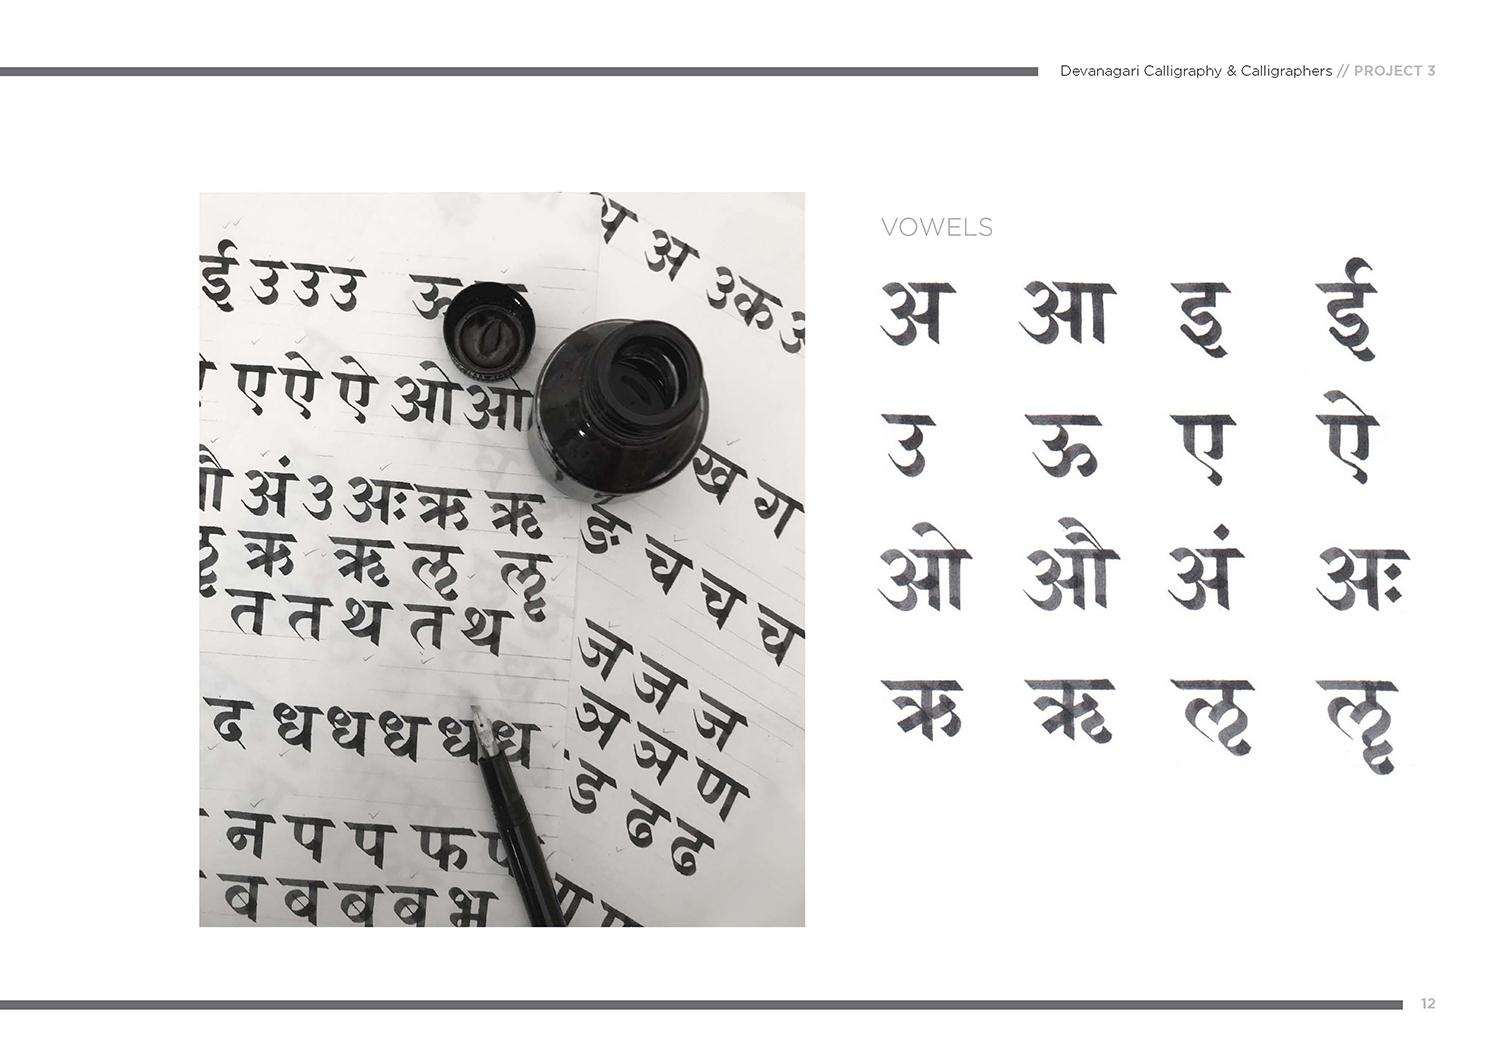 Devanagari Calligraphy & Calligraphers // PROJECT 3
ई उ उ उ ऊ
ए ऐ ऐ ओ
अं उ अः ऋ ॠ
ऋ ॠ ऌ ॡ
त त थ त थ
ढ ध ध ध ध ध
न प प फ
ब ब ब ब भ
अ उ क
ख ग
ङ च च च
ज ज ज
ञ ञ ण
ड ढ ढ
VOWELS
अ आ इ ई
उ ऊ ए ऐ
ओ औ अं अः
ऋ ॠ ऌ ॡ
12